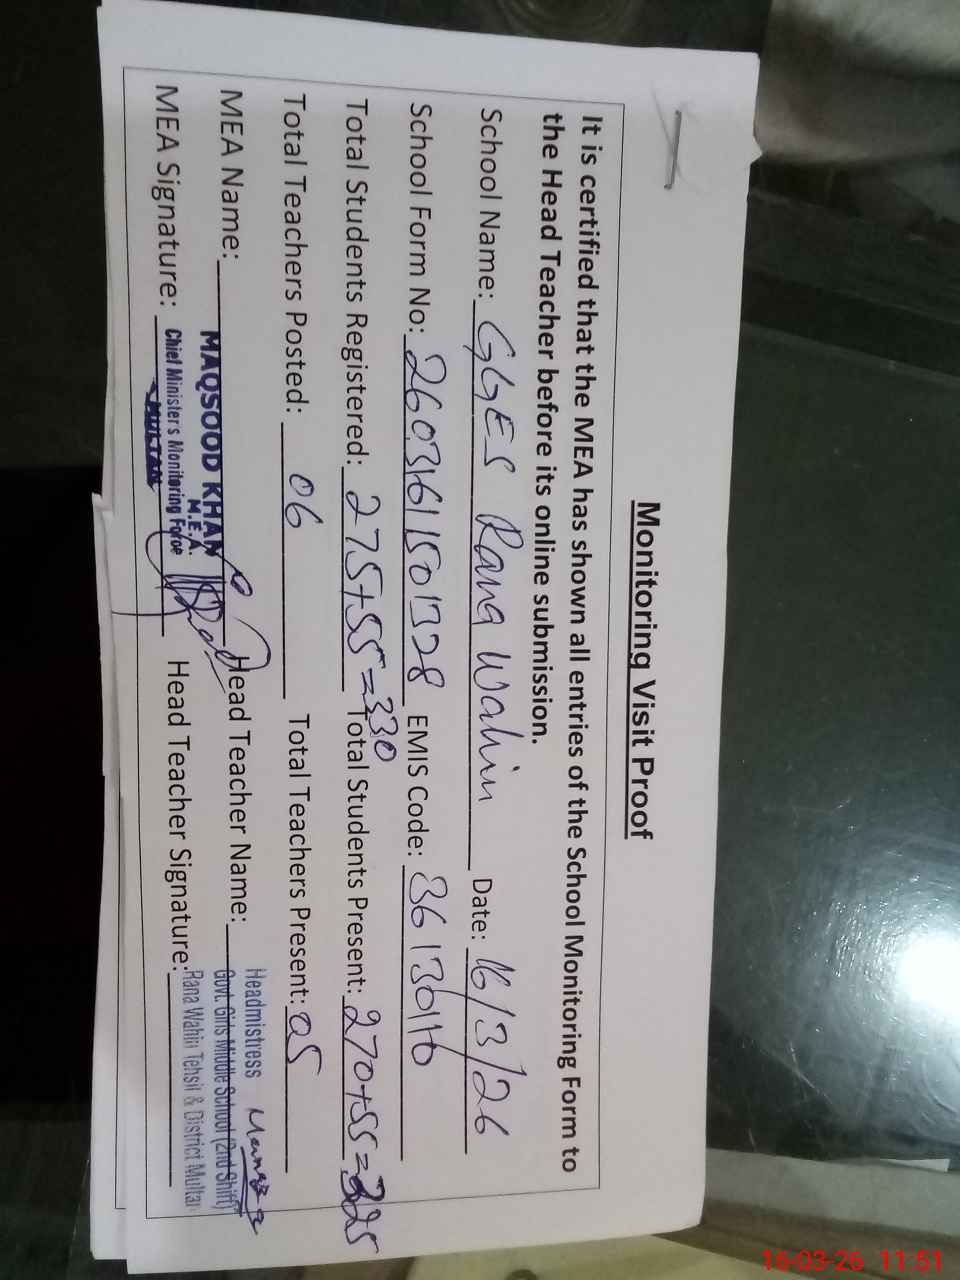 Monitoring Visit Proof
It is certified that the MEA has shown all entries of the School Monitoring Form to
the Head Teacher before its online submission.
School Name: GGES Rana Wahin Date: 16/3/26
School Form No: 2603161501328 EMIS Code: 36130116
Total Students Registered: 275+55=330 Total Students Present: 270+55=325
Total Teachers Posted: 06 Total Teachers Present: 05
MEA Name: MAQSOOD KHAN Head Teacher Name: Headmistress
M.E.A. Govt. Girls Middle School (2nd Shift)
MEA Signature: Chief Minister's Monitoring Force Head Teacher Signature: Rana Wahin Tehsil & District Multan
MULTAN
16-03-26 11:51